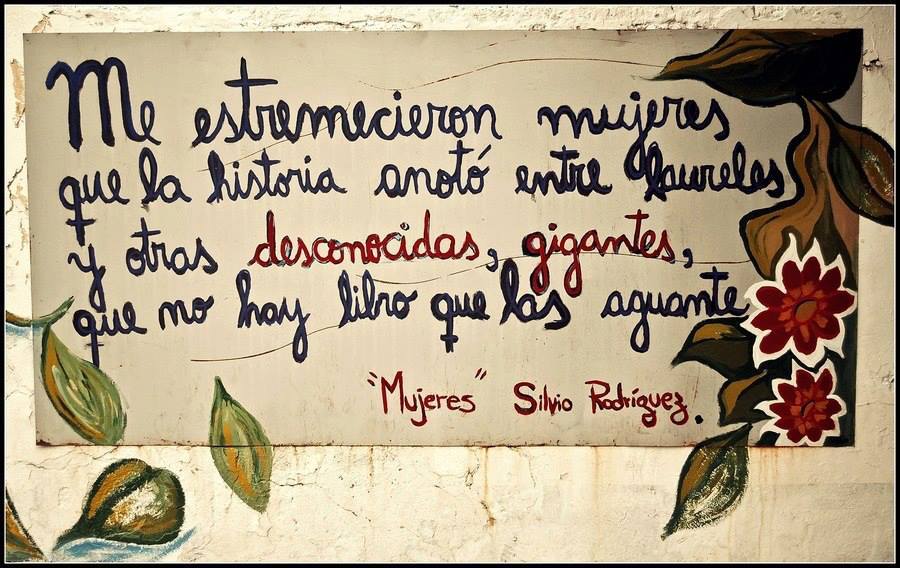 Me estremecieron mujeres
que la historia anotó entre laureles
y otras desconocidas, gigantes,
que no hay libro que las aguante
"Mujeres" Silvio Rodríguez.